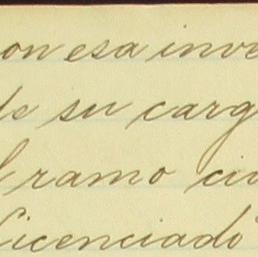 con esa inve
de su carg
l ramo civ
Licenciado